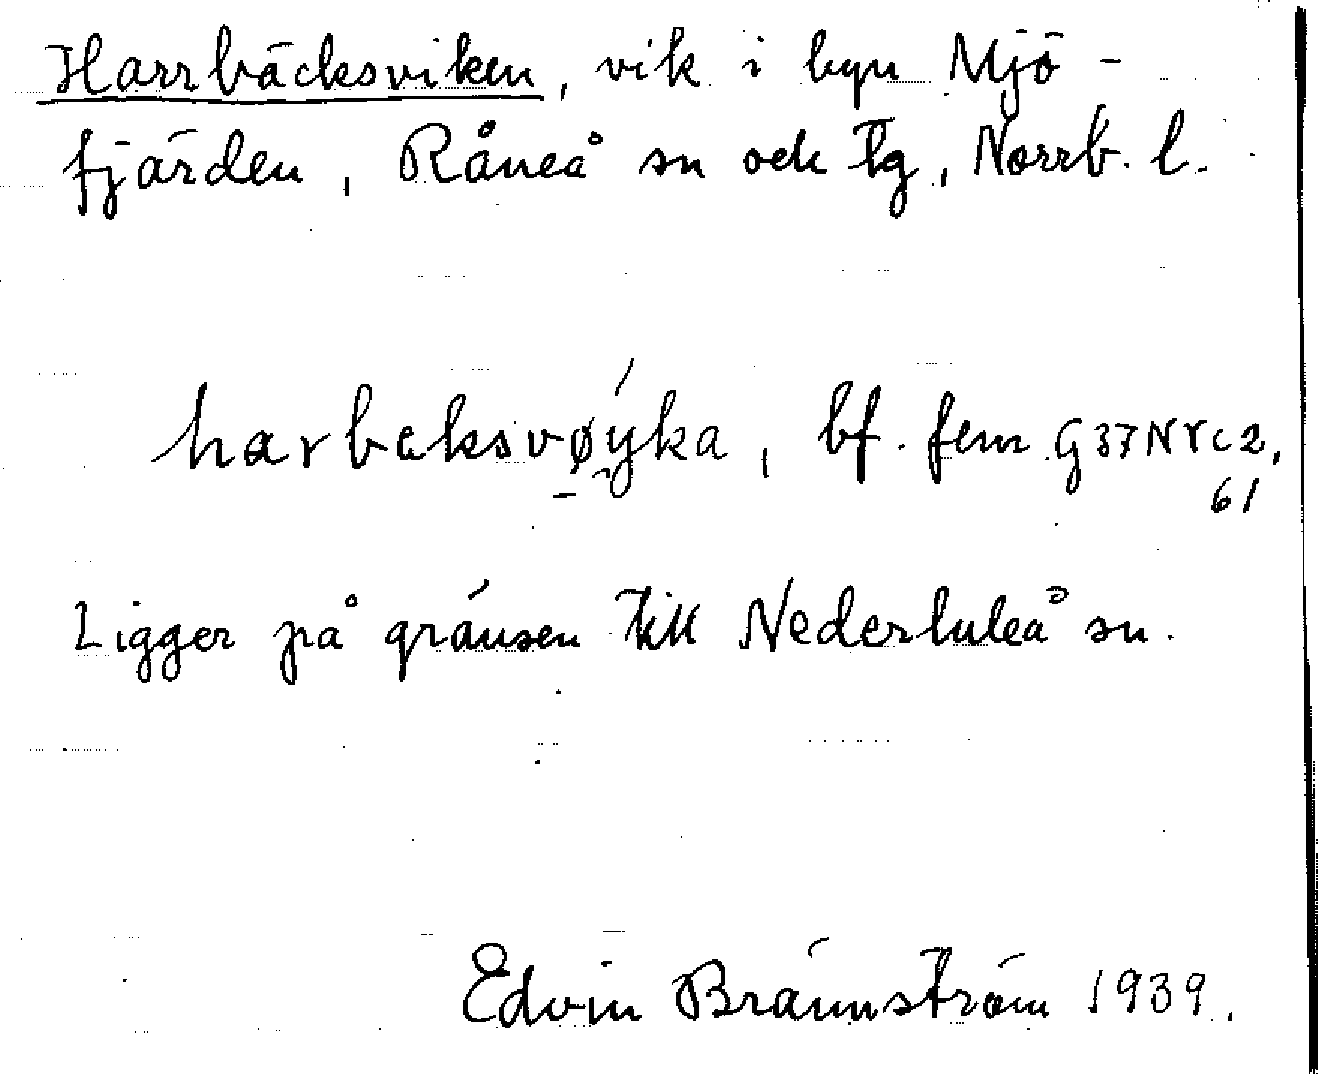 Harrbäcksviken, vik i byn Mjö-
fjärden, Råneå sn och tg, Norrb. l.
harbeksvøyka, bf. fem. G37NYC2,
61
Ligger på gränsen till Nederluleå sn.
Edvin Brännström 1939.